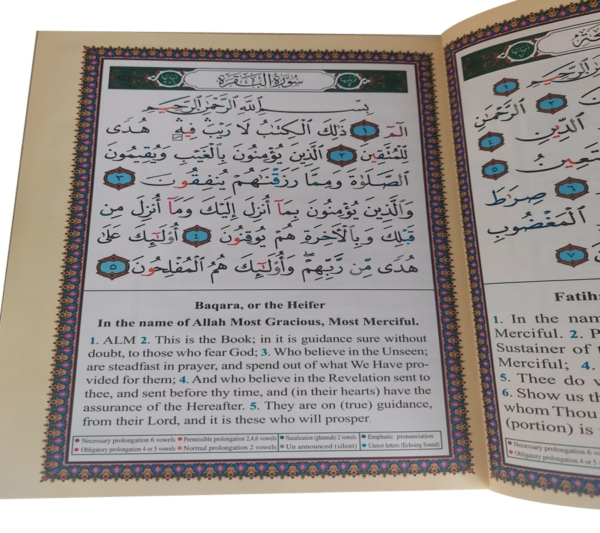 سُورَةُ الْبَقَرَةِ
بِسْمِ اللَّهِ الرَّحْمَٰنِ الرَّحِيمِ
الٓمٓ ١ ذَٰلِكَ الْكِتَٰبُ لَا رَيْبَ ۛ فِيهِ ۛ هُدًى
لِّلْمُتَّقِينَ ٢ الَّذِينَ يُؤْمِنُونَ بِالْغَيْبِ وَيُقِيمُونَ
الصَّلَوٰةَ وَمِمَّا رَزَقْنَٰهُمْ يُنفِقُونَ ٣
وَالَّذِينَ يُؤْمِنُونَ بِمَآ أُنزِلَ إِلَيْكَ وَمَآ أُنزِلَ مِن
قَبْلِكَ وَبِالْآخِرَةِ هُمْ يُوقِنُونَ ٤ أُو۟لَٰٓئِكَ عَلَىٰ
هُدًى مِّن رَّبِّهِمْ ۖ وَأُو۟لَٰٓئِكَ هُمُ الْمُفْلِحُونَ ٥
Baqara, or the Heifer
In the name of Allah Most Gracious, Most Merciful.
1. ALM 2. This is the Book; in it is guidance sure without
doubt, to those who fear God; 3. Who believe in the Unseen;
are steadfast in prayer, and spend out of what We Have pro-
vided for them; 4. And who believe in the Revelation sent to
thee, and sent before thy time, and (in their hearts) have the
assurance of the Hereafter. 5. They are on (true) guidance,
from their Lord, and it is these who will prosper.
Necessary prolongation 6 vowels Permissible prolongation 2,4,6 vowels Nazalization (ghunnah) 2 vowels Emphatic pronunciation
Obligatory prolongation 4 or 5 vowels Normal prolongation 2 vowels Un announced (silent) Unrest letters (Echoing Sound)
١
٢ الرَّحْمَٰنِ
الدِّينِ
٤
٥
٦ صِرَٰطَ
الْمَغْضُوبِ
٧
Fatiha
1. In the nam
Merciful. 2. P
Sustainer of
Merciful; 4.
5. Thee do w
6. Show us th
whom Thou
(portion) is
Necessary prolongation 6
Obligatory prolongation 4 or 5